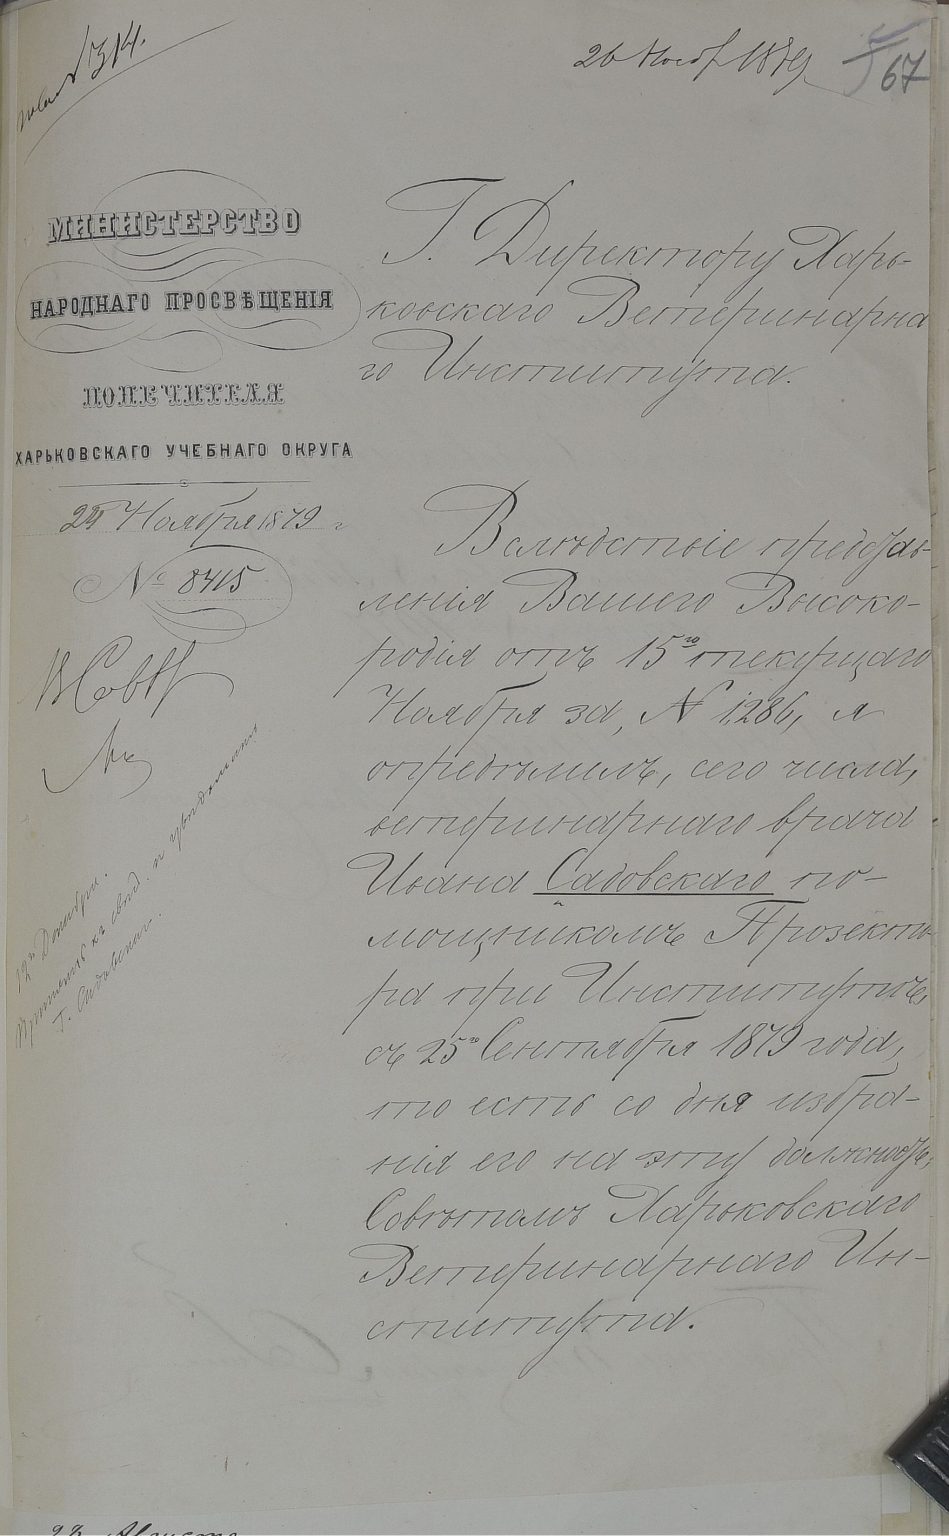 № 314.
26 Нояб 1879
67
МИНИСТЕРСТВО
НАРОДНАГО ПРОСВѢЩЕНІЯ
ПОПЕЧИТЕЛЯ
ХАРЬКОВСКАГО УЧЕБНАГО ОКРУГА
24 Ноября 1879 г
№ 8415
Г. Директору Харь-
ковскаго Ветеринарна
го Института.
Вслѣдствіе представ-
ленія Вашего Высоко-
родія отъ 15го текущаго
Ноября за № 1286, я
опредѣлилъ, сего числа,
ветеринарнаго врача
Ивана Садовскаго по-
мощникомъ Прозекто-
ра при Институтѣ,
съ 25го Сентября 1879 года,
то есть со дня избра-
нія его на эту должность
Совѣтомъ Харьковскаго
Ветеринарнаго Ин-
ститута.
В Совѣт
12го Декабря.
Принять къ свѣд. и увѣдомить
г. Садовскаго.
23 Августа